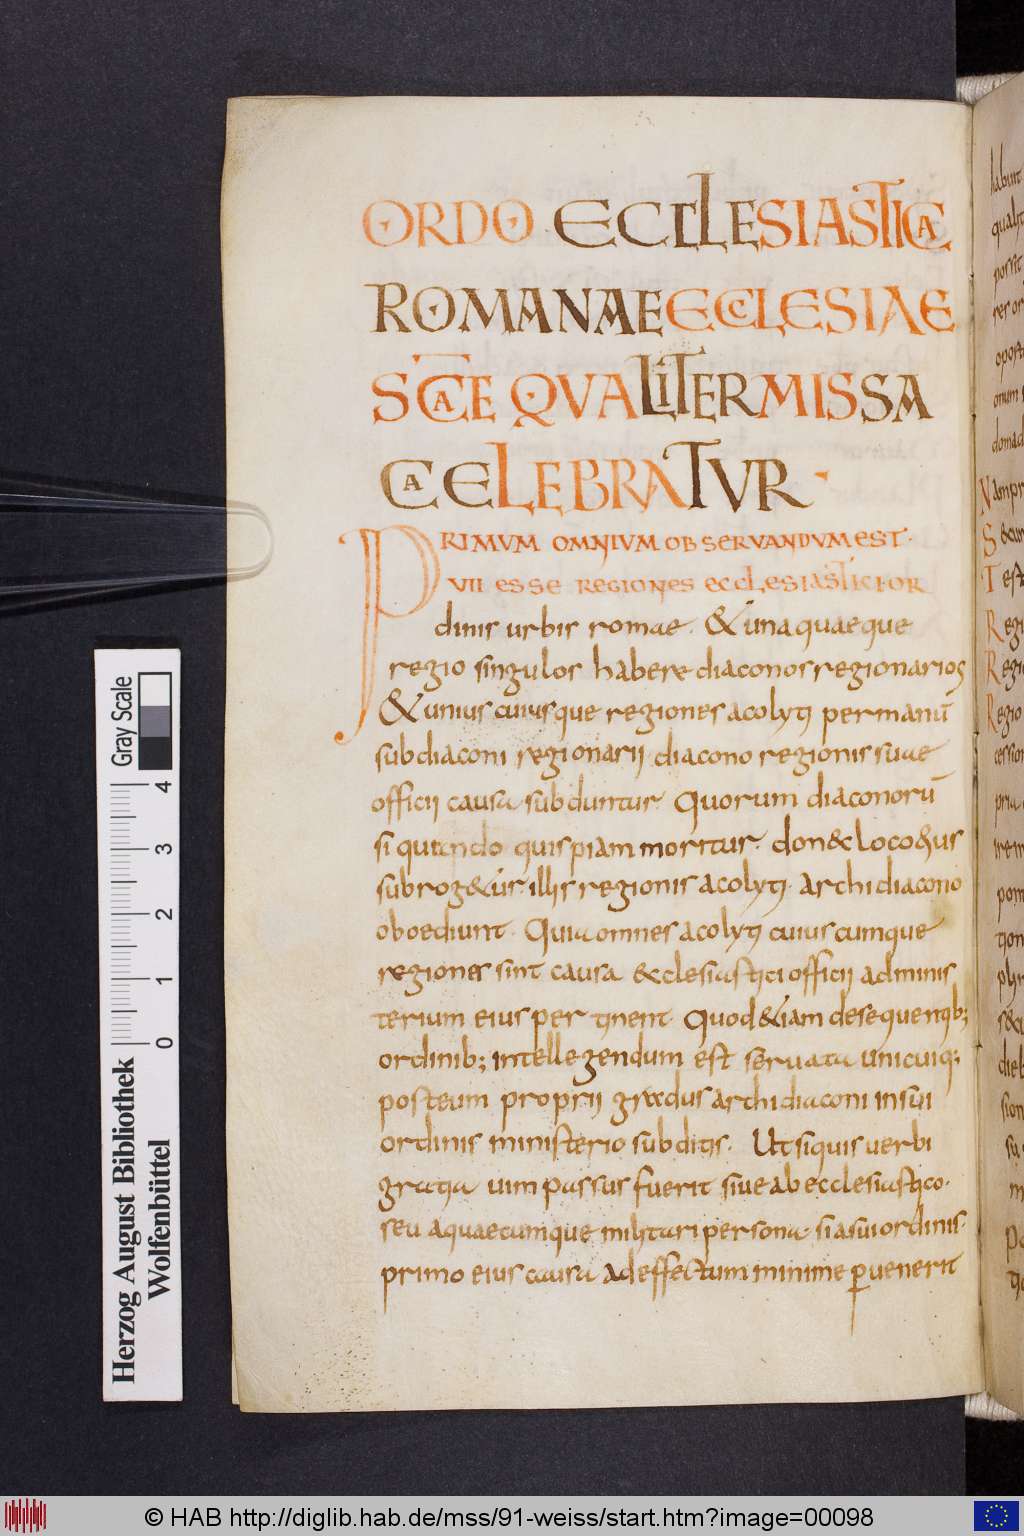 ORDO ECCLESIASTICA
ROMANAE ECCLESIAE
SCAE QVALITER MISSA
CAELEBRATVR
PRIMVM OMNIVM OBSERVANDVM EST.
VII ESSE REGIONES ECCLESIASTICI OR
dinis urbis romae. & una quaeque
regio singulos habere diaconos regionarios
& unius cuiusque regiones acolyti per manū
subdiaconi regionarii diacono regionis suae
officii causa subduntur Quorum diaconorū
si quando quispiam moritur. don& loco ei us
subrog&ur illis regionis acolyti. archidiacono
oboediunt. Quia omnes acolyti cuiuscumque
regiones sint causa &clesiastici officii adminis
terium eius pertinent. Quod &iam de sequentib;
ordinib; intellegendum est servata unicuiq;
posteum proprii gradus archidiaconi in sui
ordinis ministerio subditis. Ut siquis verbi
gratia vim passus fuerit sive ab ecclesiastico.
seu a quaecumque militari persona. si a sui ordinis.
primo eius causa ad effectum minime pvenerit
habunt
qualit
possit
Nampr
Test
Regi
Regio
Regio
cession
Gray Scale
4
3
2
1
0
Herzog August Bibliothek
Wolfenbüttel
© HAB http://diglib.hab.de/mss/91-weiss/start.htm?image=00098